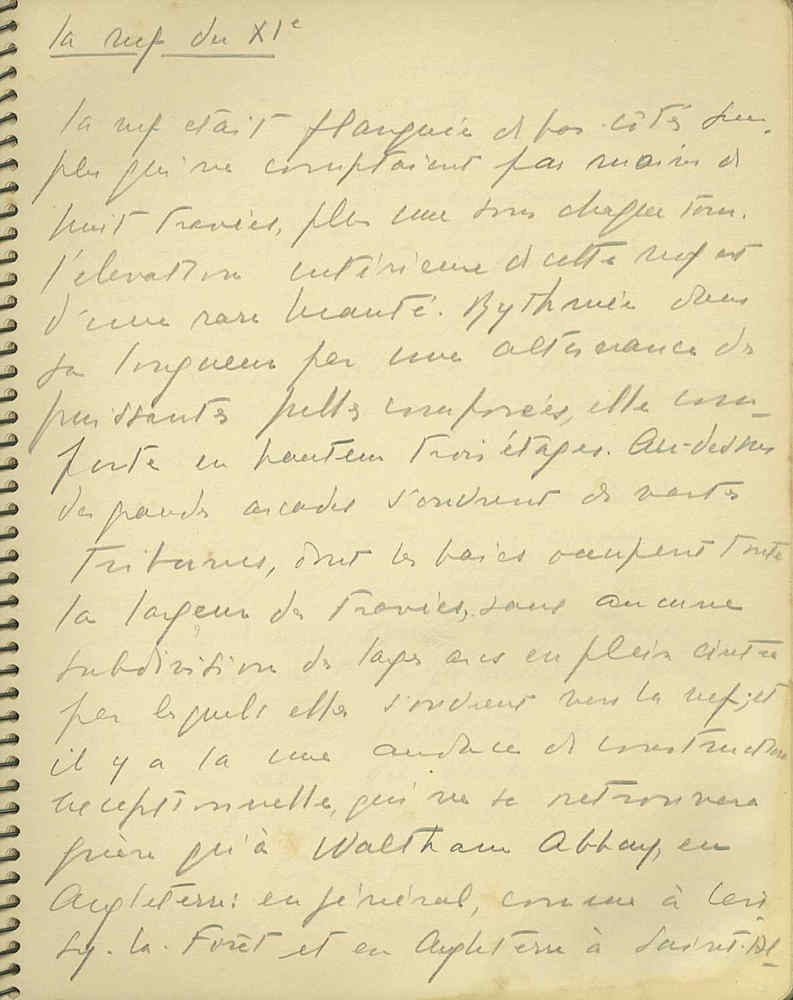 la nef du XIe
la nef était flanquée de bas-côtés sim-
ples qui ne comptaient pas moins de
huit travées, plus une sous chaque tour.
l'élévation intérieure de cette nef est
d'une rare beauté. Rythmée dans
sa longueur par une alternance de
puissantes piles composées, elle com-
porte en hauteur trois étages. Au-dessus
des grandes arcades s'ouvrent de vastes
tribunes, dont les baies occupent toute
la largeur des travées, sans aucune
subdivision des larges arcs en plein cintre
par lesquels elles s'ouvrent vers la nef; et
il y a là une audace de construction
exceptionnelle, qui ne se retrouvera
guère qu'à Waltham Abbay, en
Angleterre: en général, comme à Ceri
sy-la-Forêt et en Angleterre à Saint-Al-